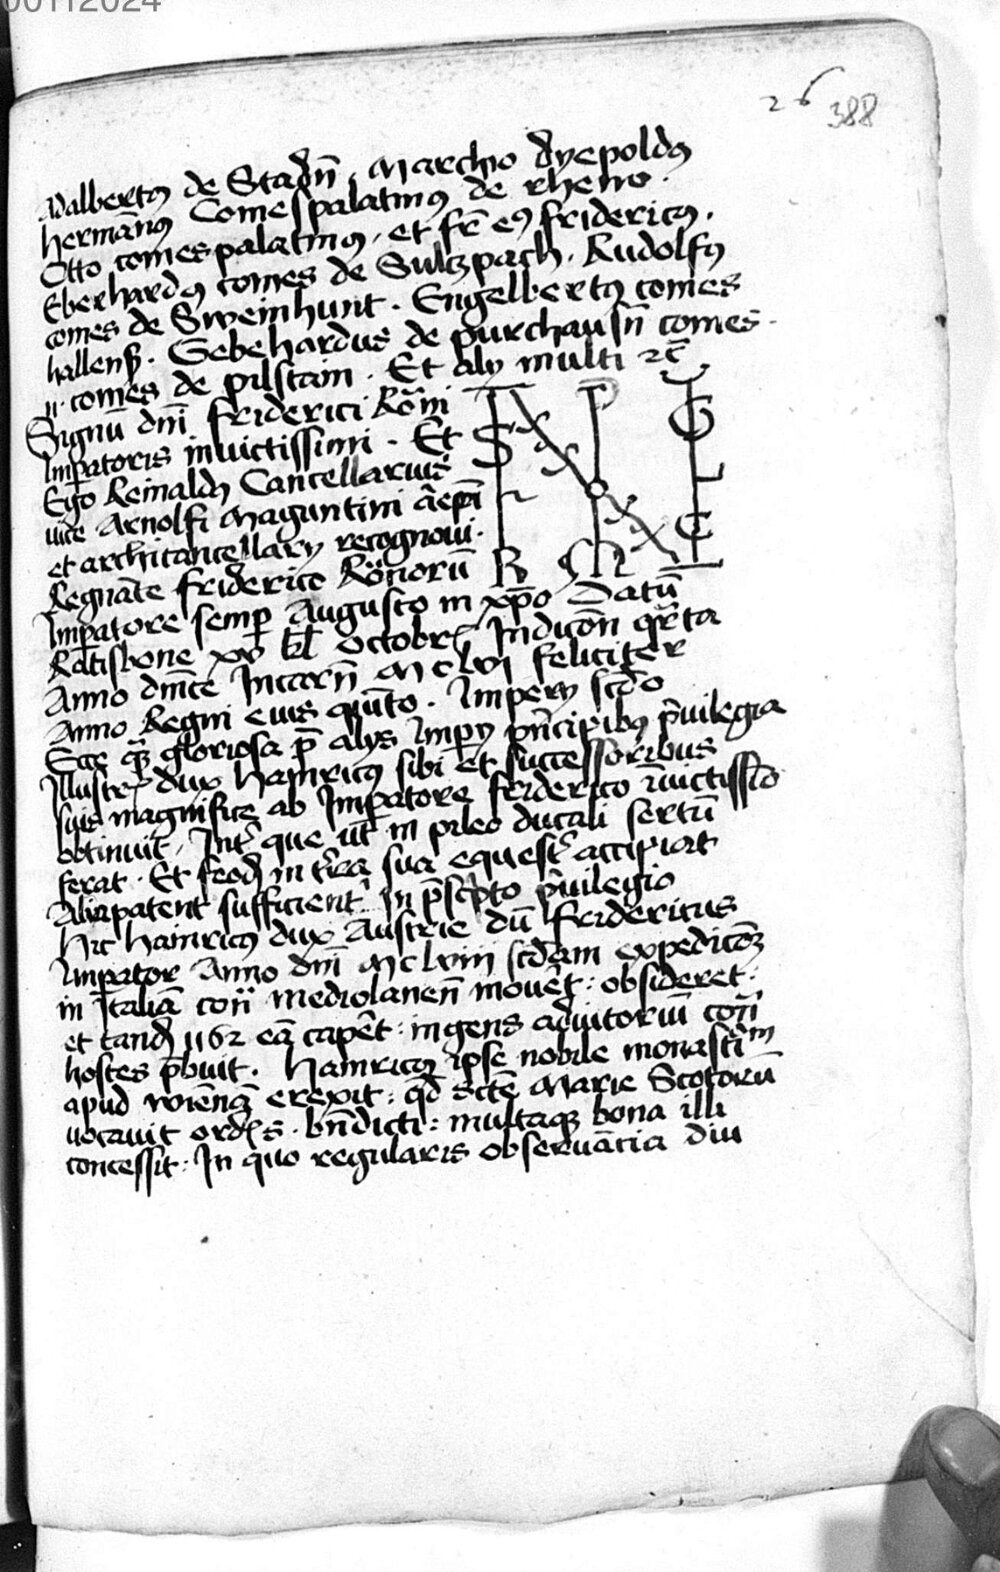 00112024
26
388
Adalbertꝰ de Stadn̄ . Marchio dyepoldꝰ
hermānꝰ Comespalatinꝰ de rheno .
Otto comespalatinꝰ . et fr̄ eꝰ friderictꝰ .
Eberhardꝰ comes de Sultzpach . Rudolfꝰ
comes de Sweinhunt . Engelbertꝰ comes
hallenſ̄ . Gebehardus de purchausn̄ comes .
comes de pilstain . Et alij multi ꝛc̄
Signū dn̄i friderici Rōm̄
Imꝑatoris inuictissimi . Et
Ego Reinaldꝰ Cancellarius
uice Arnolfi Maguntini ar̄epi
et architancellarij recognoui .
Regnāte friderico Rōnorū
Imꝑatore semꝑ Augusto in xp̄o Datū
Ratisbone xv kl̄ Octobrꝭ Indicōn̄ qr̄ta
Anno dn̄ice Incarn̄ Mclvi feliciter
Anno Regni eius quīto . Imperij scd̄o
Ecce q̄ꝫ gloriosa p̄ alijs Imꝑij pn̄cipibꝰ pͥuilegia
Illustrꝭ dux hainricꝰ sibi et successoribus
suis magnifice ab Imꝑatore friderico inuictissīo
obtinuit . Int̄ que ut in pileo ducali sertū
ferat . Et feodꝭ in tr̄ra sua equestꝭ accipiat
Alia patent sufficient̄ In p̄scͥpto pͥuilegio
Hic hainricꝰ dux Austrie dū fridericus
Imꝑator Anno dn̄i Mclviii scd̄am expedicōꝫ
in Italiā con̄ mediolanen̄ mouēt : obsideret :
et tandꝭ 1162 eā capēt : ingens adiutoriū con̄
hostes p̄buit . Hainricꝰ ipse nobile monastͥm
apud wiēnā erexit : qd̄ scte Marie Scotorū
uocauit ordꝭs . bn̄dicti : multaqꝫ bona illi
concessit : In quo regularis obseruācia diu